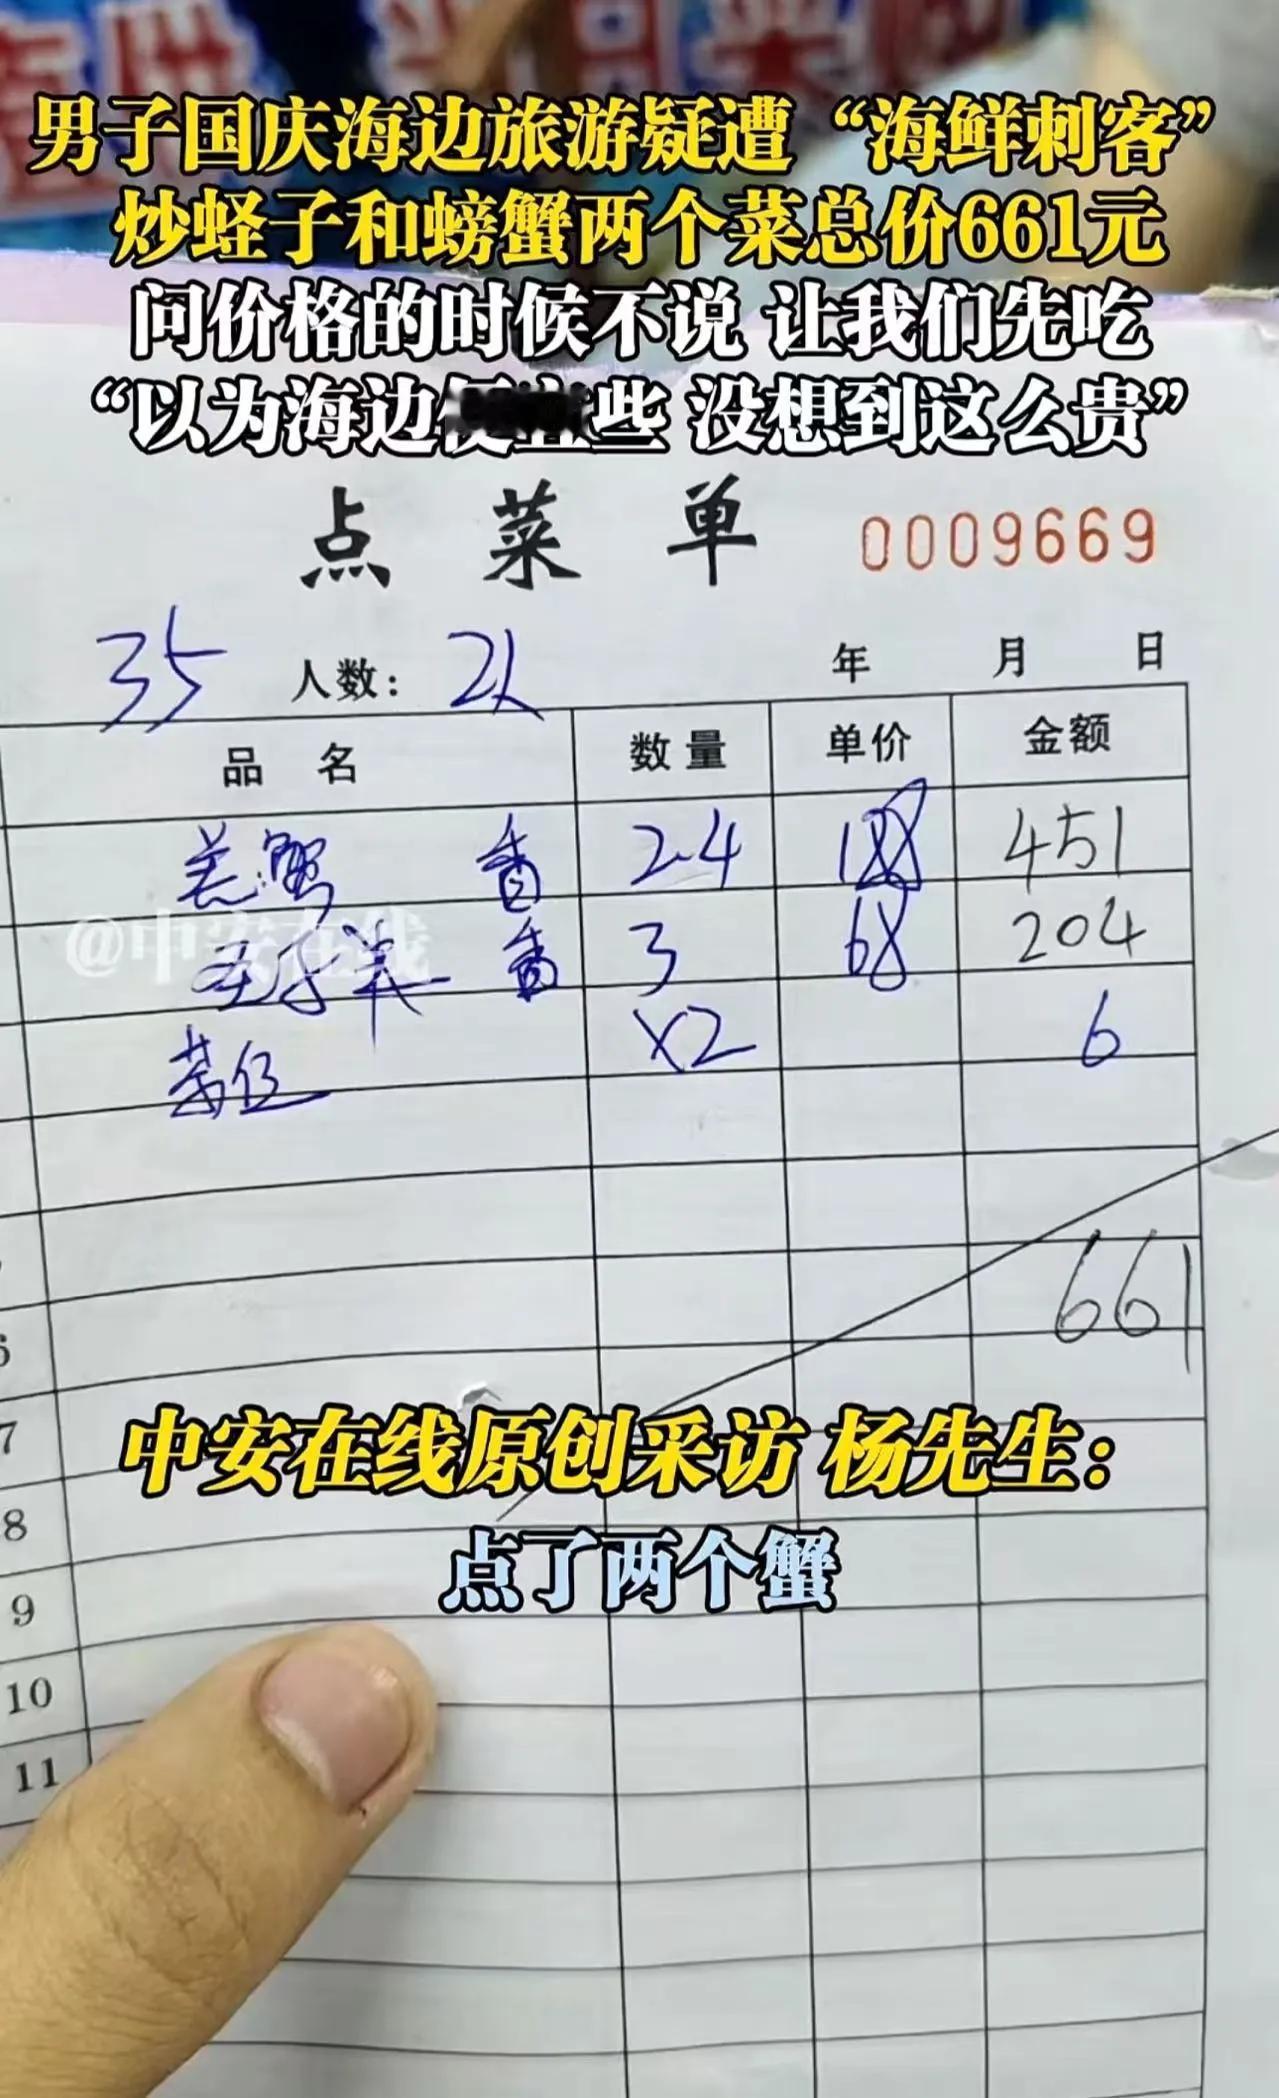 男子国庆海边旅游疑遭“海鲜刺客”
炒蛏子和螃蟹两个菜总价661元
问价格的时候不说 让我们先吃
“以为海边便宜些 没想到这么贵”
点菜单 0009669
35 人数: 2人 年 月 日
品名 数量 单价 金额
羔蟹 香 2.4 188 451
@中安在线
香 3 68 204
茶位 x2 6
661
6
7
中安在线原创采访 杨先生：
8
点了两个蟹
9
10
11